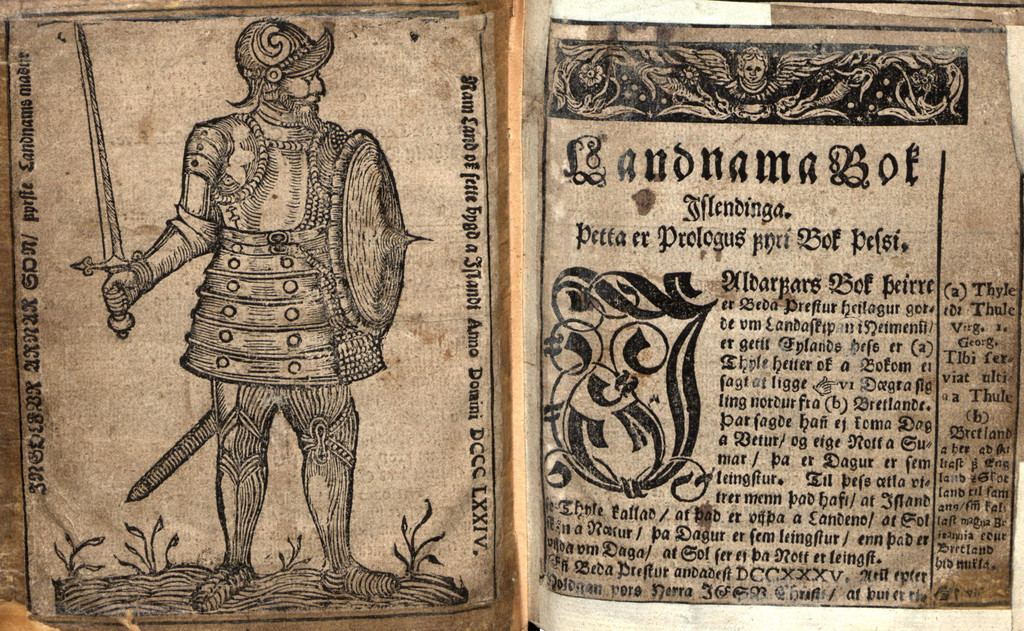 INGOLFR ARNAR SON/ fyrste Landnams madur
Nam Land ok sette bygd a Islandi Anno Domini DCCC LXXIV.
Landnama Bok
Islendinga.
Þetta er Prologus fyri Bok þessi.
Aldarfars Bok þeirre
er Beda Prestur heilagur gor-
de vm Landaskipan i Heimenū/
er getit Eylands þess er (a)
Thyle heiter ok a Bokom er
sagt at ligge VI Dægra sig
ling nordur fra (b) Bretlande.
Þar sagde hañ ej koma Dag
a Vetur/ og eige Nott a Su-
mar/ þa er Dagur er sem
leingstur. Til þess ætla vi-
trer menn þad haft/ at Island
Thyle kallad/ at þad er vijda a Landeno/ at Sol
a Nætur/ þa Dagur er sem leingstur/ enn þad er
vijda vm Daga/ at Sol ser ej þa Nott er leingst.
Beda Prestur andadest DCCXXXV. Arū epter
vors Herra JESV Christi/ at þui er
(a) Thyle
edr Thule
Virg. 1.
Georg.
Tibi ser-
viat ulti-
a Thule
(b)
Bretland
a her ad
land til sam
Bretland
hid mikla.